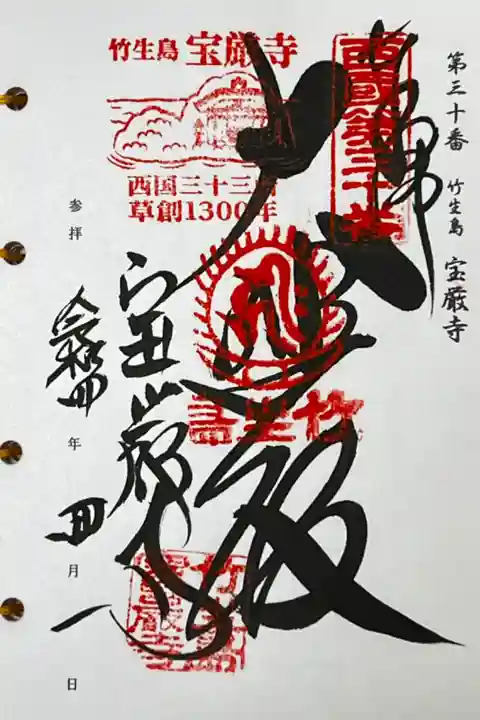 第三十番 竹生島 宝厳寺
西國第三十番
竹生島 宝厳寺
西国三十三所
草創1300年
大悲殿
竹生島
宝厳寺
参拝
令和四年四月一日